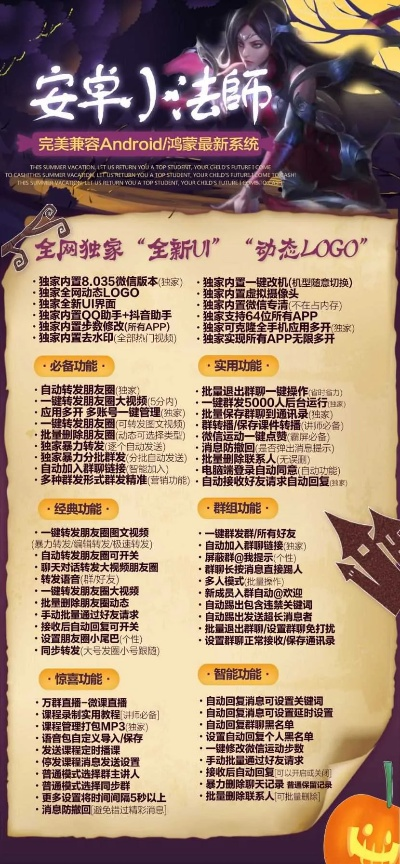 安卓小法師
完美兼容Android/鸿蒙最新系统
THIS SUMMER VACATION, LET US RETURN YOU A TOP STUDENT, YOUR CHILD'S FUTURE I COME
TO CASH!THIS SUMMER VACATION, LET US RETURN YOU A TOP STUDENT, YOUR CHILD'S FUTURE I COME TO CASH!
THIS SUMMER VACATION, LET US RETURN YOU A TOP STUDENT, YOUR CHILD'S FUTURE I COME TO CASH!
全网独家“全新UI”“动态LOGO”
·独家内置8.035微信版本(独家)
·独家全网动态LOGO
·独家全新UI界面
·独家内置QQ助手+抖音助手
·独家内置步数修改(所有APP)
·独家内置去水印(全部热门视频)
·独家内置一键改机(机型随意切换)
·独家内置虚拟摄像头
·独家内置微信专清(不在占内存)
·独家支持64位所有APP
·独家可克隆全手机应用多开(独家)
·独家实现所有APP无限多开
·必备功能·
·自动转发朋友圈(独家)
·一键转发朋友圈大视频(5分内)
·应用多开 多账号一键管理(独家)
·一键转发朋友圈(可转发图文视频)
·批量删除朋友圈(动态可选择类型)
·独家暴力转发(逐个自动发送)
·独家暴力分批群发(分批自动发送)
·自动加入群聊链接(智能加入)
·多种群发形式群发精准(营销功能)
·实用功能·
·批量退出群聊一键操作(省时省力)
·一键群发5000人后台运行(独家)
·批量保存群聊到通讯录(独家)
·群转播/保存课件转播(讲师必备)
·微信运动一键点赞(霸屏必备)
·消息防撤回(是否弹出消息提示)
·批量删除联系人(无误删)
·电脑端登录自动同意(自动功能)
·自动接收好友请求自动回复(独家)
·经典功能·
·一键转发朋友圈图文视频
(暴力转发/编辑转发/极速转发)
·自动转发朋友圈可开关
·聊天对话转发大视频朋友圈
·转发语音(群/好友)
·一键转发朋友圈大视频
·批量删除朋友圈动态
·手动批量通过好友请求
·接收后自动回复可开关
·设置朋友圈小尾巴(个性)
·同步转发(大号发圈小号跟随)
·群组功能·
·一键群发群/所有好友
·自动加入群聊链接(独家)
·屏蔽群@我提示(个性)
·群聊长按消息直接踢人
·多人模式(批量操作)
·新成员入群自动@欢迎
·自动踢出包含违禁关键词
·自动踢出发送超长消息者
·批量退出群聊/设置群聊免打扰
·设置群聊正常接收/保存通讯录
·惊喜功能·
·万群直播-微课直播
·课程录制实用教程[讲师必备]
·课程管理打包MP3(独家)
·语音包自定义导入/保存
·发送课程定时播课
·停发课程消息发送设置
·普通模式选择群主讲人
·普通模式选择同步群
·更多设置将时间间隔5秒以上
·消息防撤回[避免错过精彩消息]
·智能功能·
·自动回复消息可设置关键词
·自动回复消息可设置延时设置
·自动回复群聊黑名单
·设置自动回复个人黑名单
·一键修改微信运动步数
·手动批量通过好友请求
·接收后自动回复[可以开启或关闭]
·暴力删除聊天记录 普通保留记录
·批量删除联系人[可批量删除]